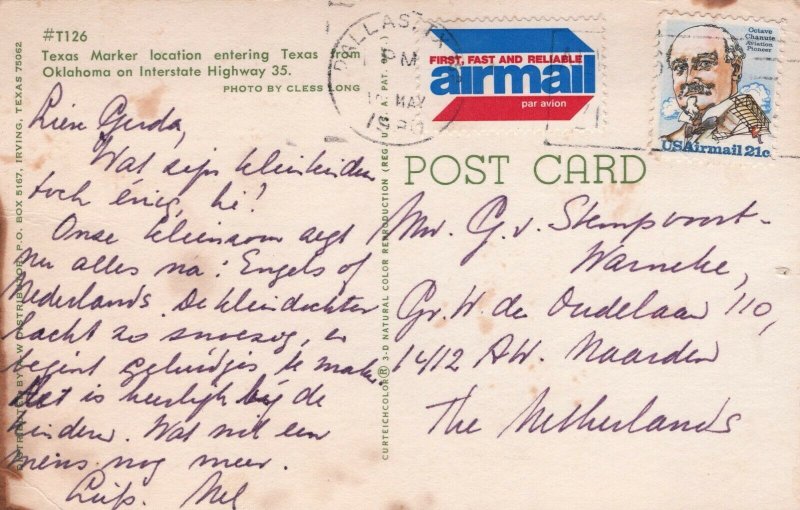 #T126
Texas Marker location entering Texas from
Oklahoma on Interstate Highway 35.
PHOTO BY CLESS LONG
Lieve Gerda,
Wat zijn kleinkinderen
toch énig, hè?
Onze kleinzoon zegt
nu alles na: Engels of
Nederlands. De kleindochter
lacht zo snoezig, en
begint geluidjes te maken.
Het is heerlijk bij de
kinderen. Wat wil een
mens nog meer.
Liefs. Nel
DISTRIBUTED BY DISTRIBUTOR, P.O. BOX 5167, IRVING, TEXAS 75062
CURTEICHCOLOR® 3-D NATURAL COLOR REPRODUCTION (REG. U.S.A. PAT. OFF.)
DALLAS, TX
PM
MAY
FIRST, FAST AND RELIABLE
airmail
par avion
Octave
Chanute
Aviation
Pioneer
USAirmail 21c
POST CARD
Mw. G. v. Stempvoort-
Warneke,
Gr. W. de Oudelaan 110,
1412 AW. Naarden
The Netherlands